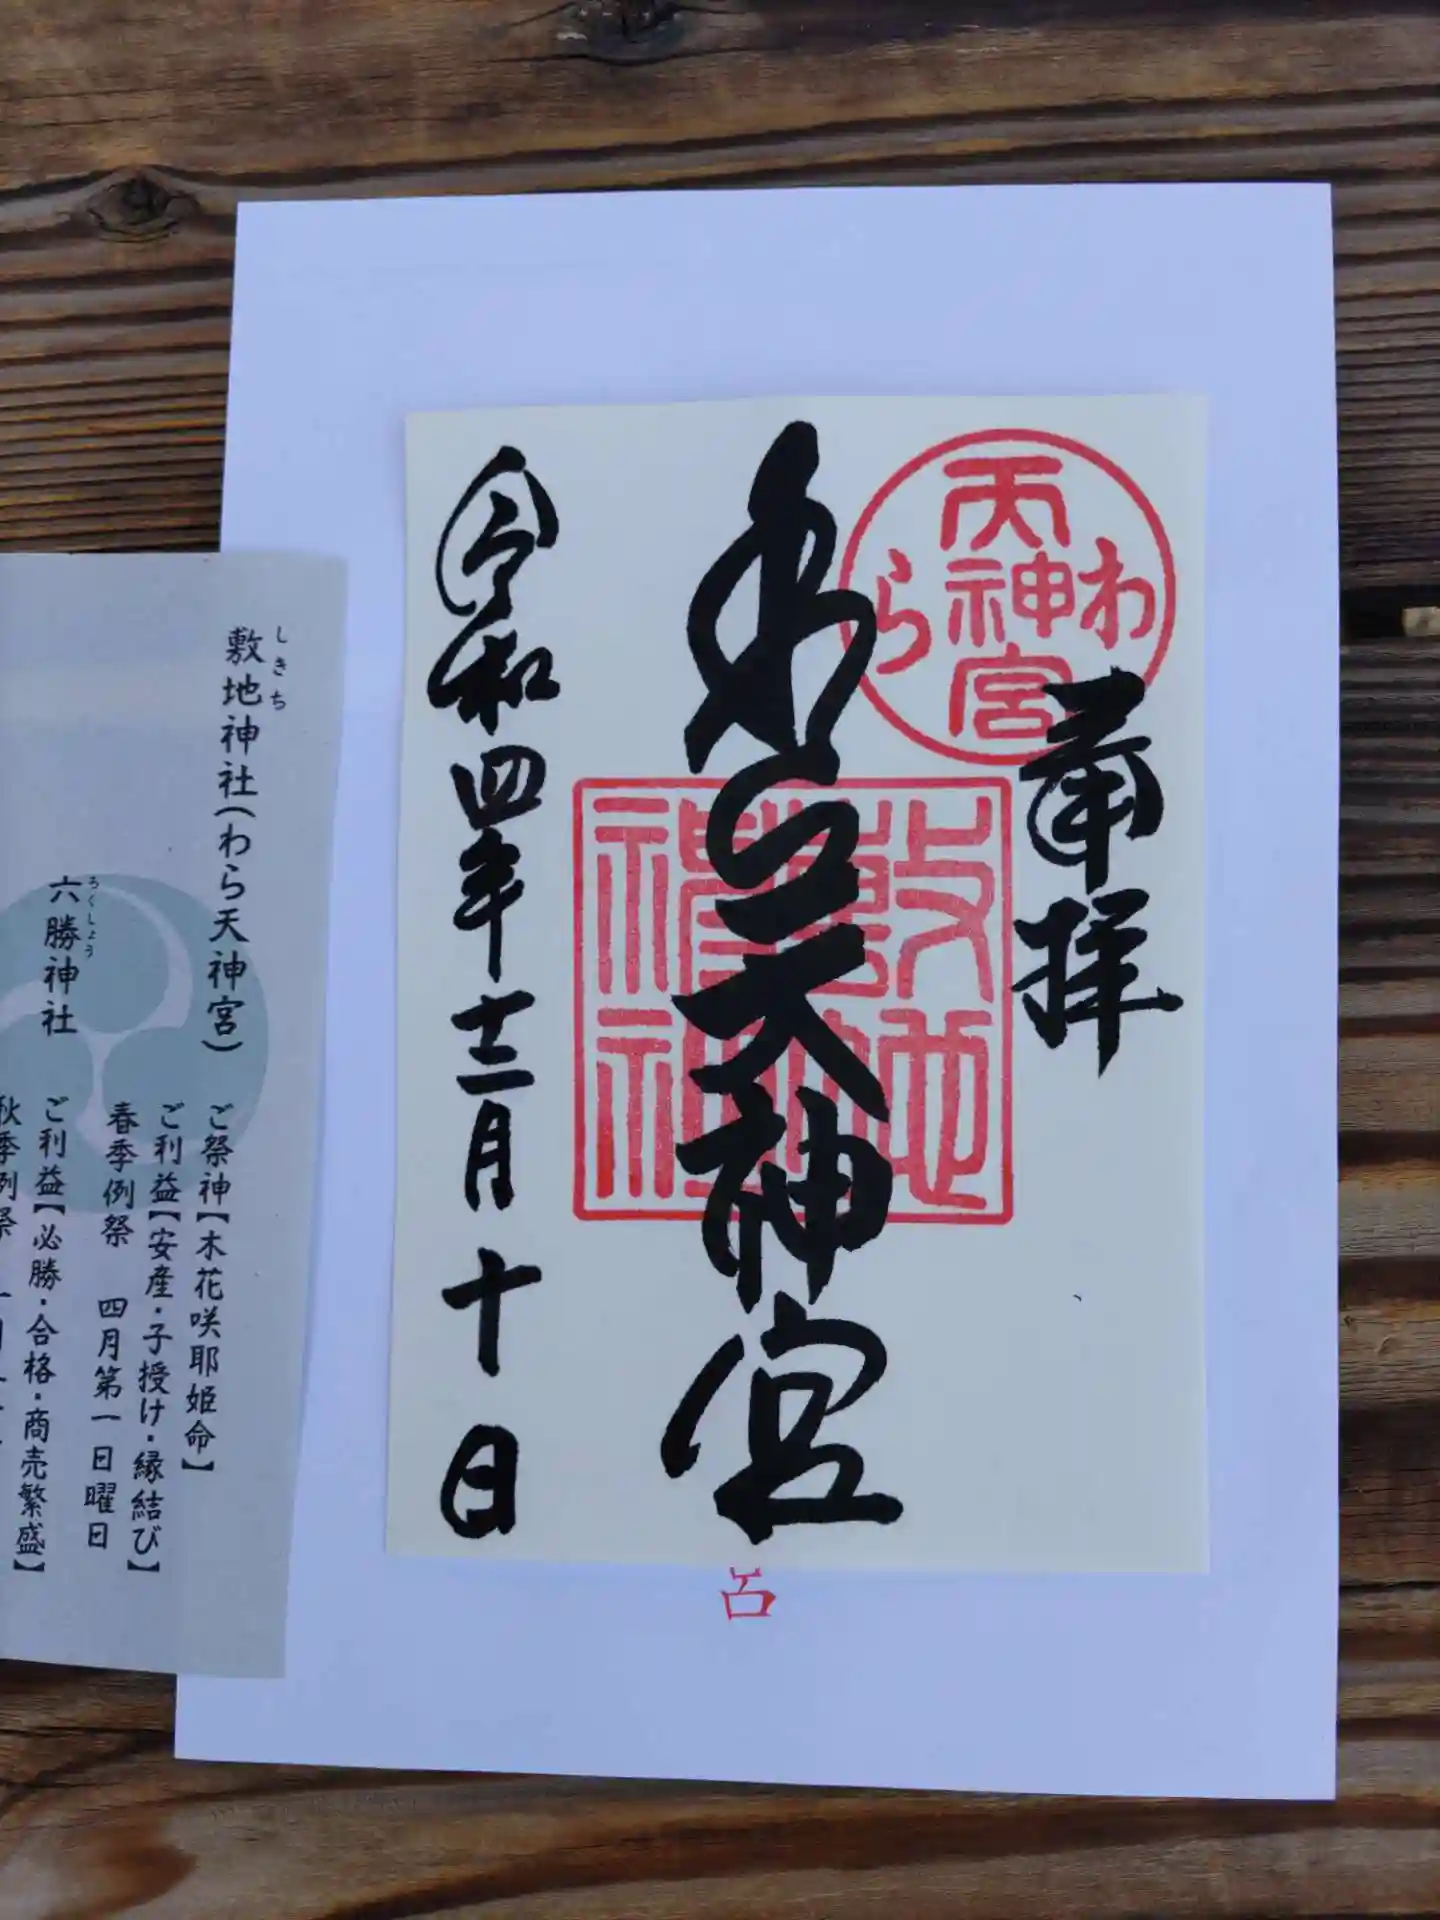 奉拝
わら天神宮
令和四年十二月十日
天神宮
わ
ら
敷地
神社
しきち
敷地神社(わら天神宮)
ご祭神【木花咲耶姫命】
ご利益【安産・子授け・縁結び】
春季例祭 四月第一日曜日
ろくしょう
六勝神社
ご利益【必勝・合格・商売繁盛】
秋季例祭